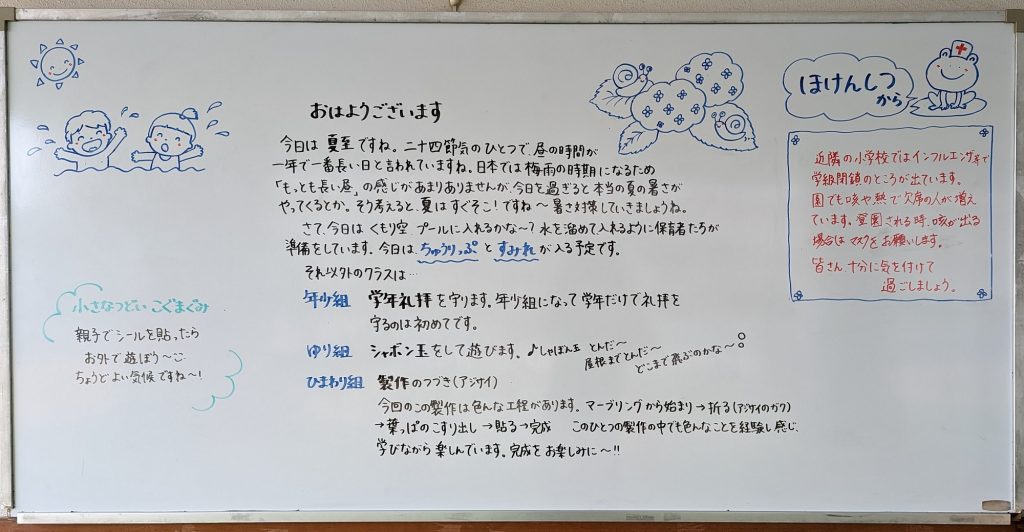 おはようございます
今日は 夏至 ですね。二十四節気のひとつで昼の時間が
一年で一番長い日と言われていますね。日本では梅雨の時期になるため
「もっとも長い昼」の感じがあまりありませんが、今日を過ぎると本当の夏の暑さが
やってくるとか。そう考えると、夏はすぐそこ!ですね〜 暑さ対策していきましょうね。
さて、今日は くもり空 プールに入れるかな〜? 水を溜めて入れるように保育者たちが
準備をしています。今日は、ちゅうりっぷ と すみれ が入る予定です。
それ以外のクラスは…
年少組 学年礼拝を守ります。年少組になって学年だけで礼拝を
守るのは初めてです。
ゆり組 シャボン玉をして遊びます。♪しゃぼん玉 とんだ〜
屋根までとんだ〜
どこまで飛ぶのかな〜
ひまわり組 製作のつづき(アジサイ)
今回のこの製作は色んな工程があります。マーブリングから始まり→折る(アジサイのガク)
→葉っぱのこすり出し→貼る→完成 このひとつの製作の中でも色んなことを経験し感じ、
学びながら楽しんでいます。完成をお楽しみに〜!!
小さなつどい こぐまぐみ
親子でシールを貼ったら
お外で遊ぼう〜
ちょうどよい気候ですね〜!
ほけんしつ
から
近隣の小学校ではインフルエンザ等で
学級閉鎖のところが出ています。
園でも咳や熱で欠席の人が増え
ています。登園される時、咳が出る
場合はマスクをお願いします。
皆さん、十分に気を付けて
過ごしましょう。